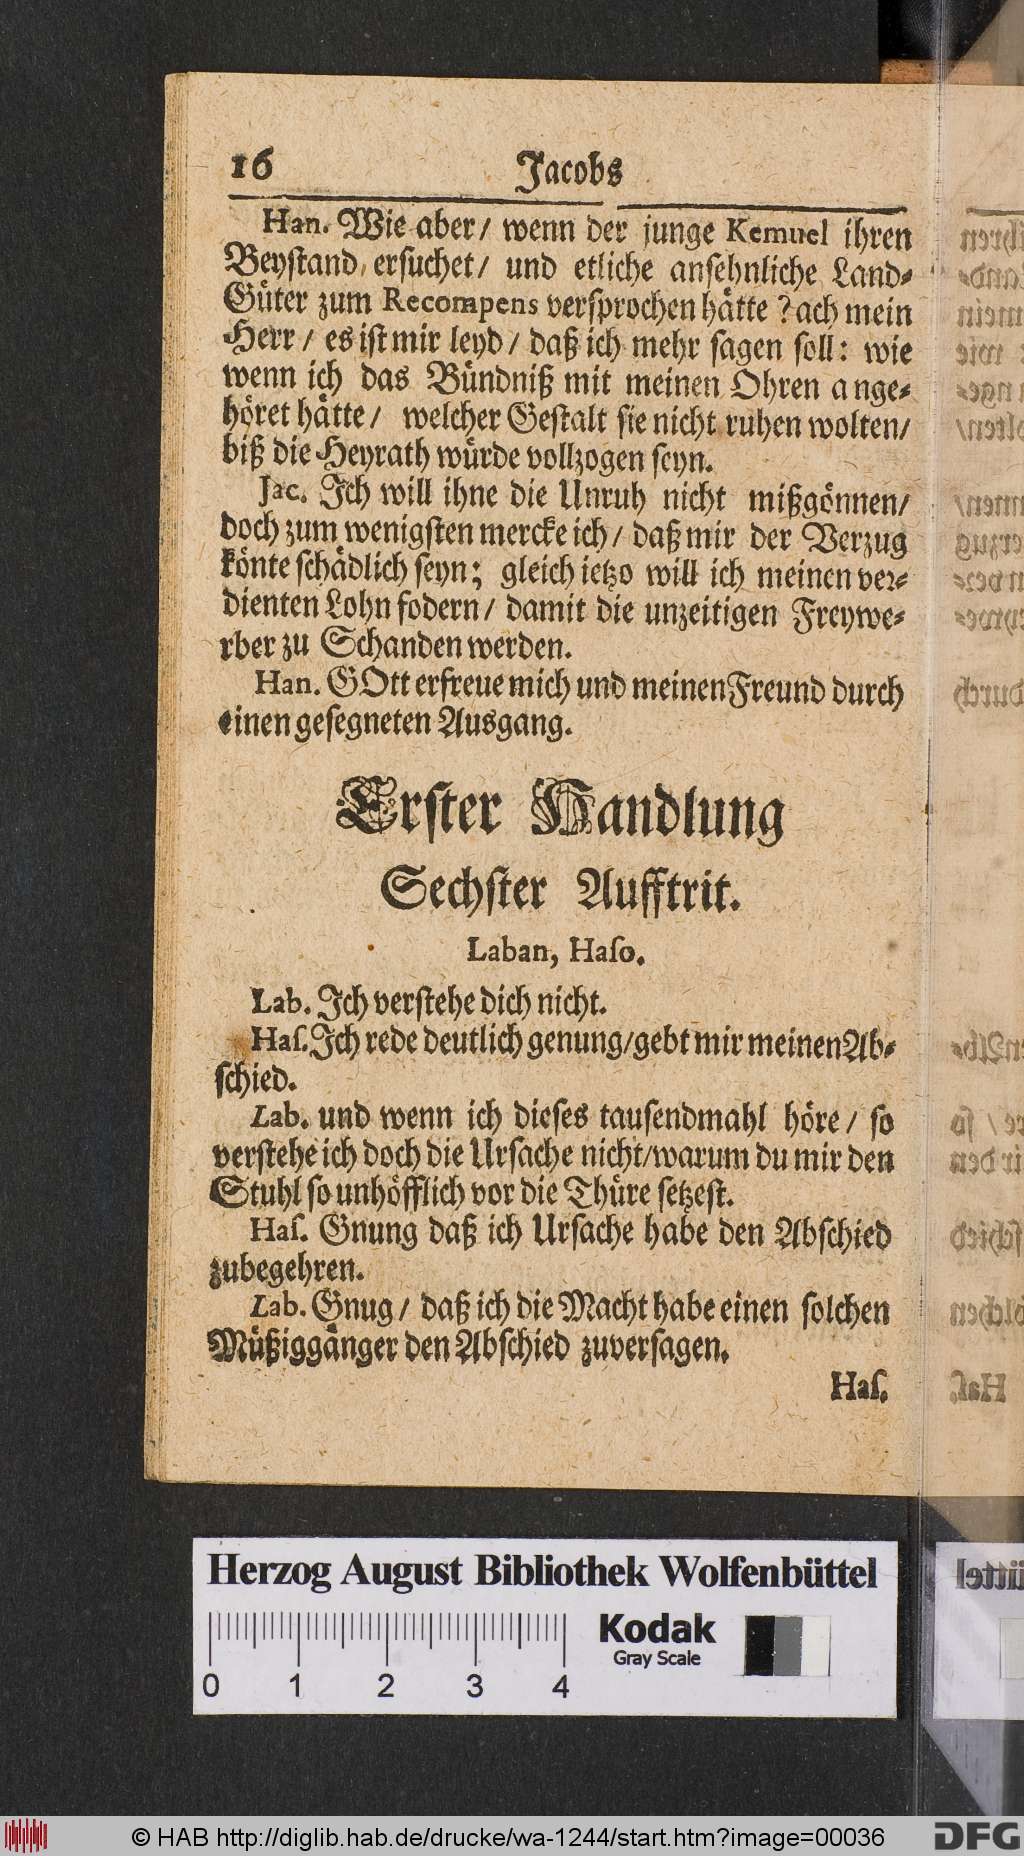 16 Jacobs
Han. Wie aber/ wenn der junge Kemuel ihren
Beystand ersuchet/ und etliche ansehnliche Land-
Güter zum Recompens versprochen hätte? ach mein
Herr/ es ist mir leyd/ daß ich mehr sagen soll: wie
wenn ich das Bündniß mit meinen Ohren ange-
höret hätte/ welcher Gestalt sie nicht ruhen wolten/
biß die Heyrath würde vollzogen seyn.
Jac. Ich will ihne die Unruh nicht mißgönnen/
doch zum wenigsten mercke ich/ daß mir der Verzug
könte schädlich seyn; gleich ietzo will ich meinen ver-
dienten Lohn fodern/ damit die unzeitigen Freywe-
rber zu Schanden werden.
Han. GOtt erfreue mich und meinen Freund durch
einen gesegneten Ausgang.
Erster Handlung
Sechster Aufftrit.
Laban, Haſo.
Lab. Ich verstehe dich nicht.
Haſ. Ich rede deutlich genung/gebt mir meinen Ab-
schied.
Lab. und wenn ich dieses tausendmahl höre/ so
verstehe ich doch die Ursache nicht/warum du mir den
Stuhl so unhöfflich vor die Thüre setzest.
Haſ. Gnung daß ich Ursache habe den Abschied
zubegehren.
Lab. Gnug/ daß ich die Macht habe einen solchen
Müßiggänger den Abschied zuversagen.
Haſ.
Herzog August Bibliothek Wolfenbüttel
Kodak
Gray Scale
0 1 2 3 4
© HAB http://diglib.hab.de/drucke/wa-1244/start.htm?image=00036
DFG